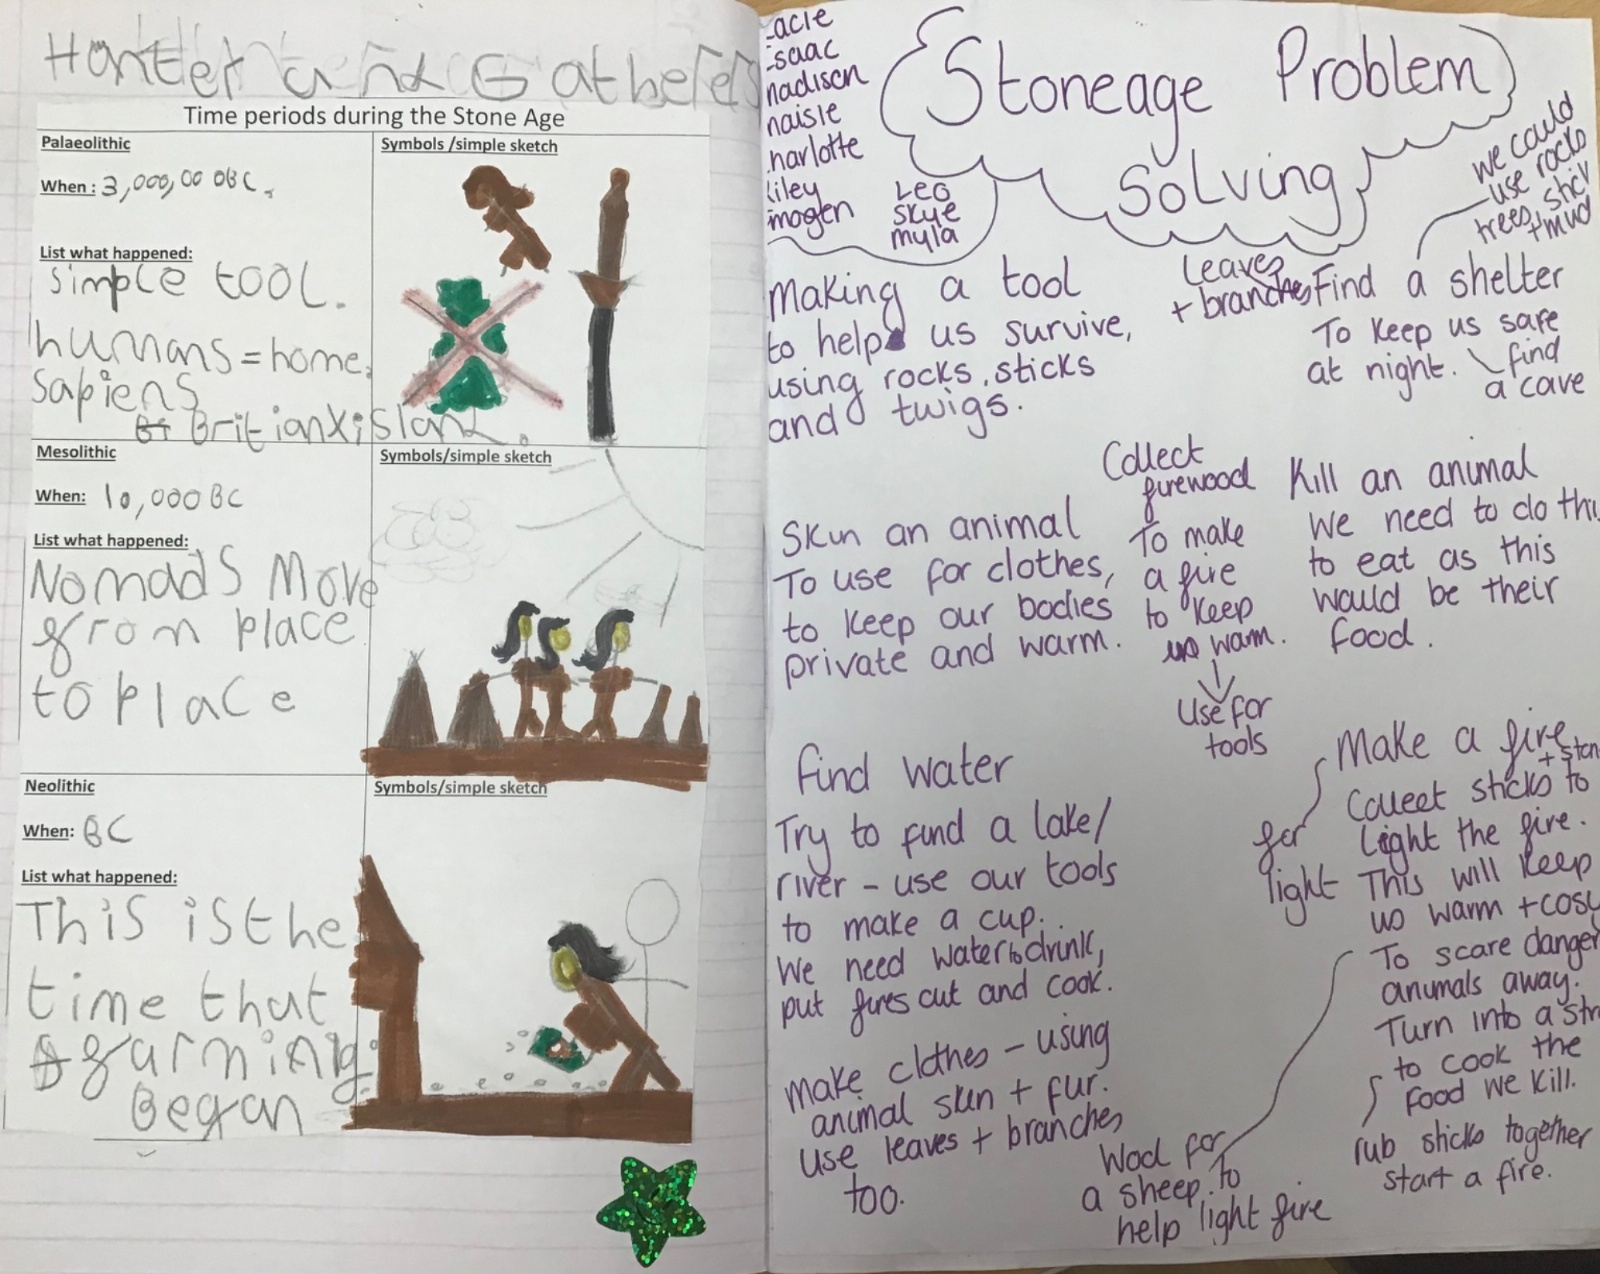 Hunter and Gatherers
Time periods during the Stone Age
Palaeolithic
Symbols /simple sketch
When : 3,000,00 0BC.
List what happened:
simple tool.
humans = home
sapiens
Britian X island.
Mesolithic
Symbols/simple sketch
When: 10,000BC
List what happened:
Nomads Move
from place
to place
Neolithic
Symbols/simple sketch
When: BC
List what happened:
This is the
time that
farming
Began
acie
saac
nadison
naisie
harlotte
iley
imogen
Leo
Skye
myla
Stoneage Problem
Solving
Making a tool
to help us survive,
using rocks, sticks
and twigs.
leaves
+ branches
Find a shelter
To keep us safe
at night.
find
a cave
we could
use rocks
trees, stick
+mud
Skin an animal
To use for clothes,
to keep our bodies
private and warm.
Collect
firewood
To make
a fire
to keep
us warm.
Use for
tools
Kill an animal
We need to do thi
to eat as this
would be their
food.
find water
Try to find a lake/
river - use our tools
to make a cup.
We need water to drink,
put fires out and cook.
Make clothes - using
animal skin + fur.
use leaves + branches
too.
Make a fire
+ ston
Collect sticks to
Light the fire.
This will keep
us warm + cosy
To scare danger
animals away.
Turn into a
to cook the
food we kill.
for
light
rub sticks together
start a fire.
Wool for
a sheep, to
help light fire